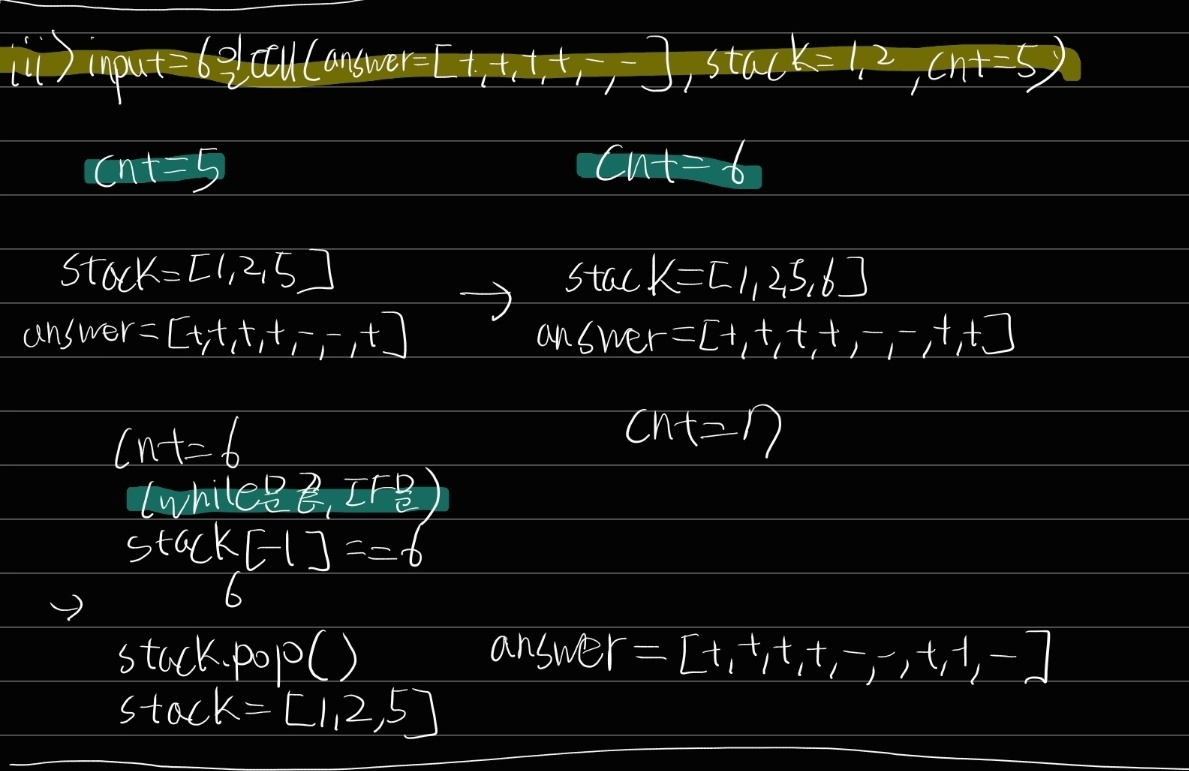 iii) input=6일 때(answer=[+,+,+,+,-,-], stack=1,2, cnt=5)
cnt=5
cnt=6
stack=[1,2,5]
answer=[+,+,+,+,-,-,+]
→
stack=[1,2,5,6]
answer=[+,+,+,+,-,-,+,+]
cnt=7
cnt=6
(while문 끝, IF문)
stack[-1]==6
6
→
stack.pop()
stack=[1,2,5]
answer=[+,+,+,+,-,-,+,+,-]